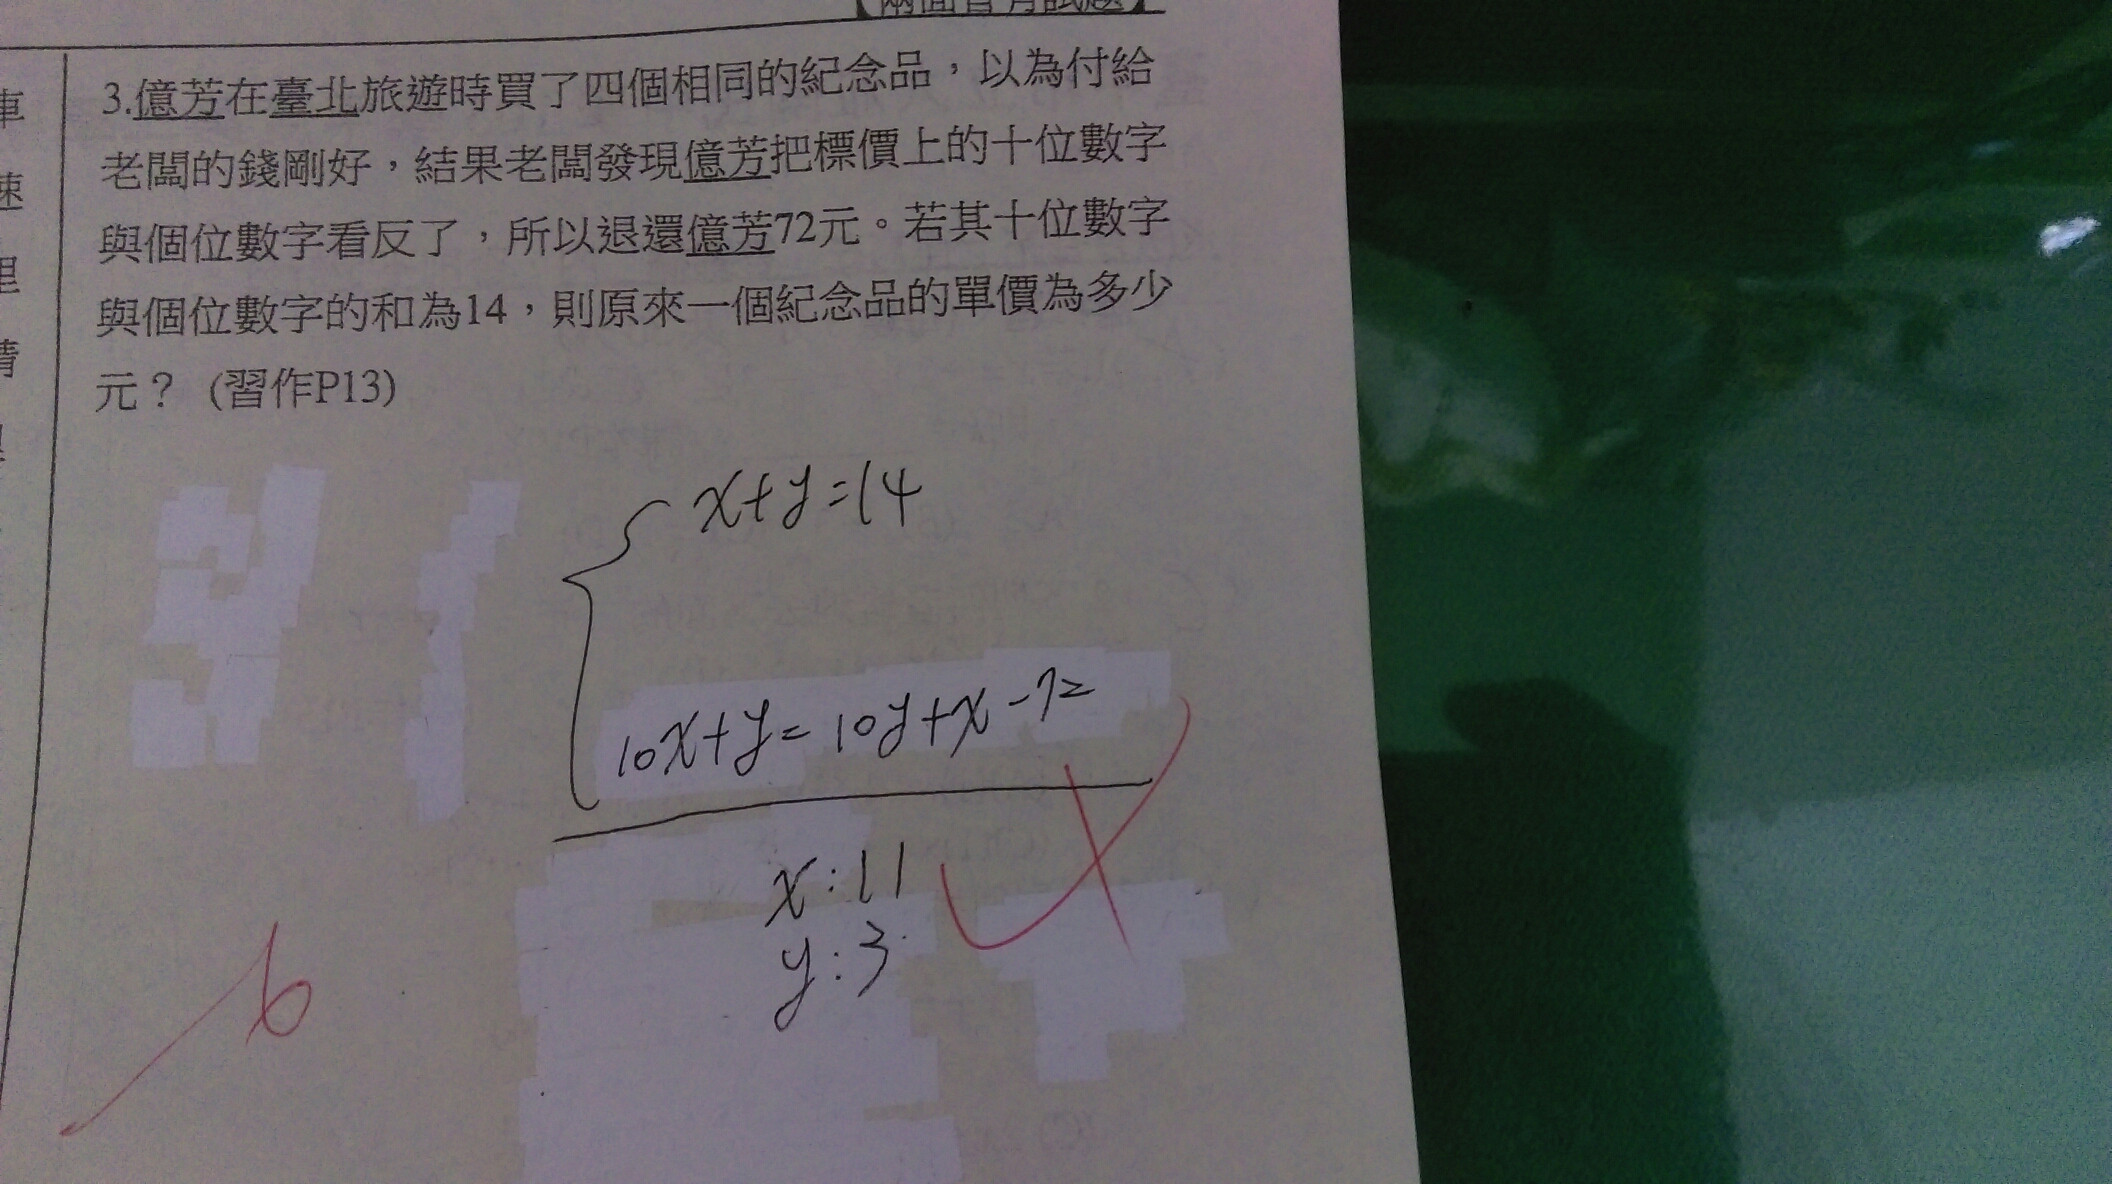 【兩面皆有試題】
3.億芳在臺北旅遊時買了四個相同的紀念品，以為付給
老闆的錢剛好，結果老闆發現億芳把標價上的十位數字
與個位數字看反了，所以退還億芳72元。若其十位數字
與個位數字的和為14，則原來一個紀念品的單價為多少
元？ (習作P13)
x+y=14
10x+y=10y+x-72
x:11
y:3
6
車
速
里
情